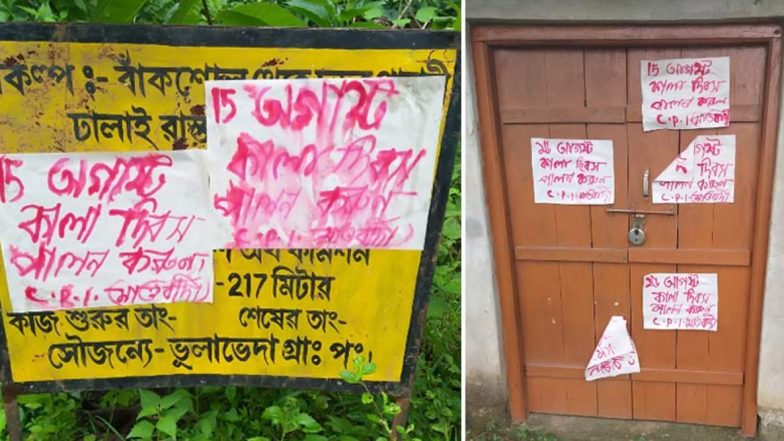 প্রকল্প :- বাঁকশোল
ঢালাই রাস্তা
15 অগাস্ট
কালা দিবস
পালন করুন
C.P.I. (মাওবাদী)
15 অগাস্ট
কালা দিবস
পালন করুন
C.P.I. (মাওবাদী)
অর্থ কমিশন
- 217 মিটার
কাজ শুরুর তাং- শেষের তাং-
সৌজন্যে- ভূলাভেদা গ্রাঃ পং।
15 আগস্ট
কালা দিবস
পালন করুন
C.P.I (মাওবাদী)
আগস্ট
কালা দিবস
পালন করুন
C.P.I (মাওবাদী)
গস্ট
দিবস
পালন করুন
C.P.I (মাওবাদী)
আগস্ট
কালা দিবস
পালন করুন
C.P.I (মাওবাদী)